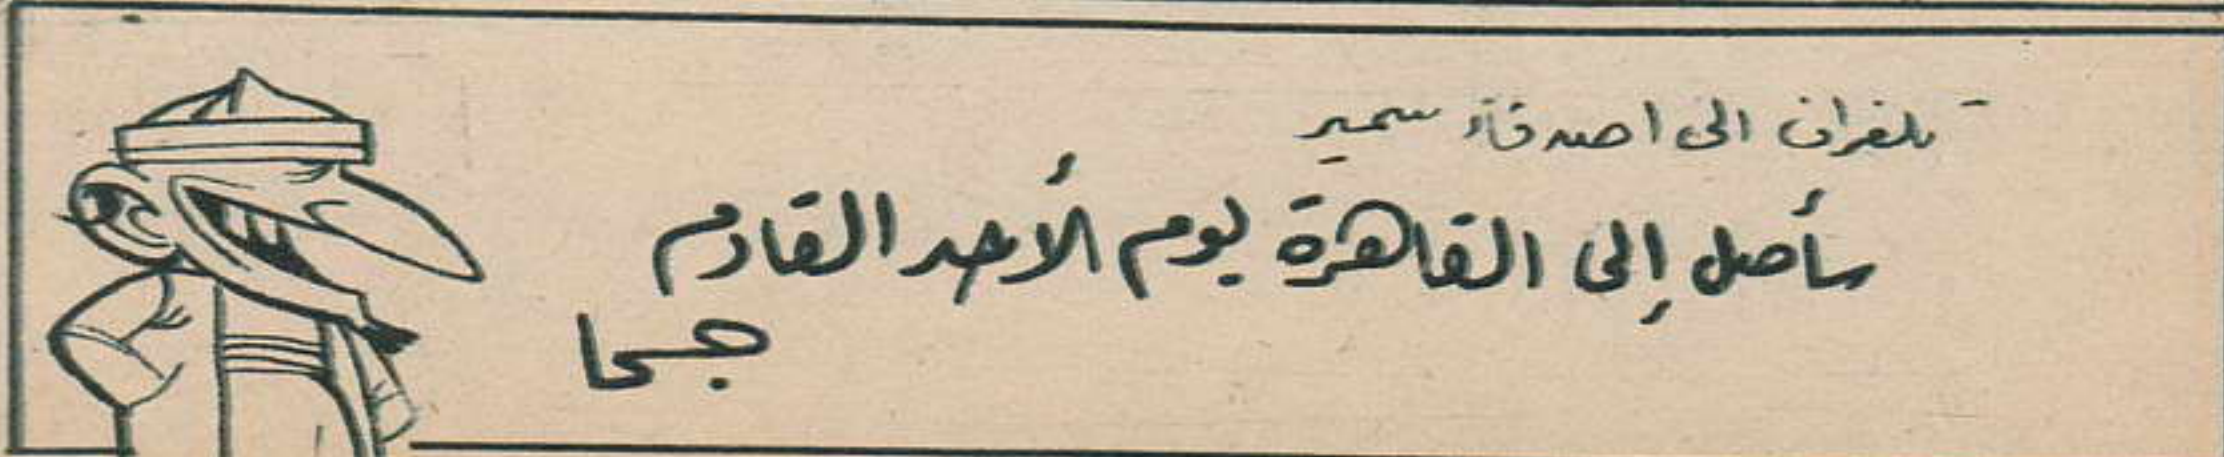 تلغراف الى اصدقاء سمير
سأصل إلى القاهرة يوم الأحد القادم
جحا